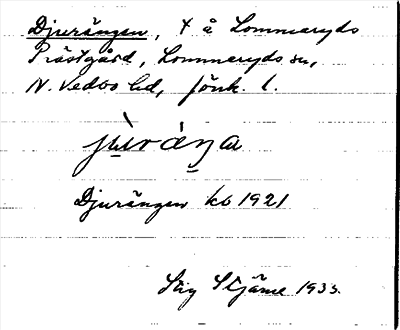 Djurängen, t å Lommaryds
Prästgård, Lommaryds sn,
N. Vedbo hd, Jönk. l.
jùráŋa
Djurängen kb 1921
Stig Stjärne 1935.